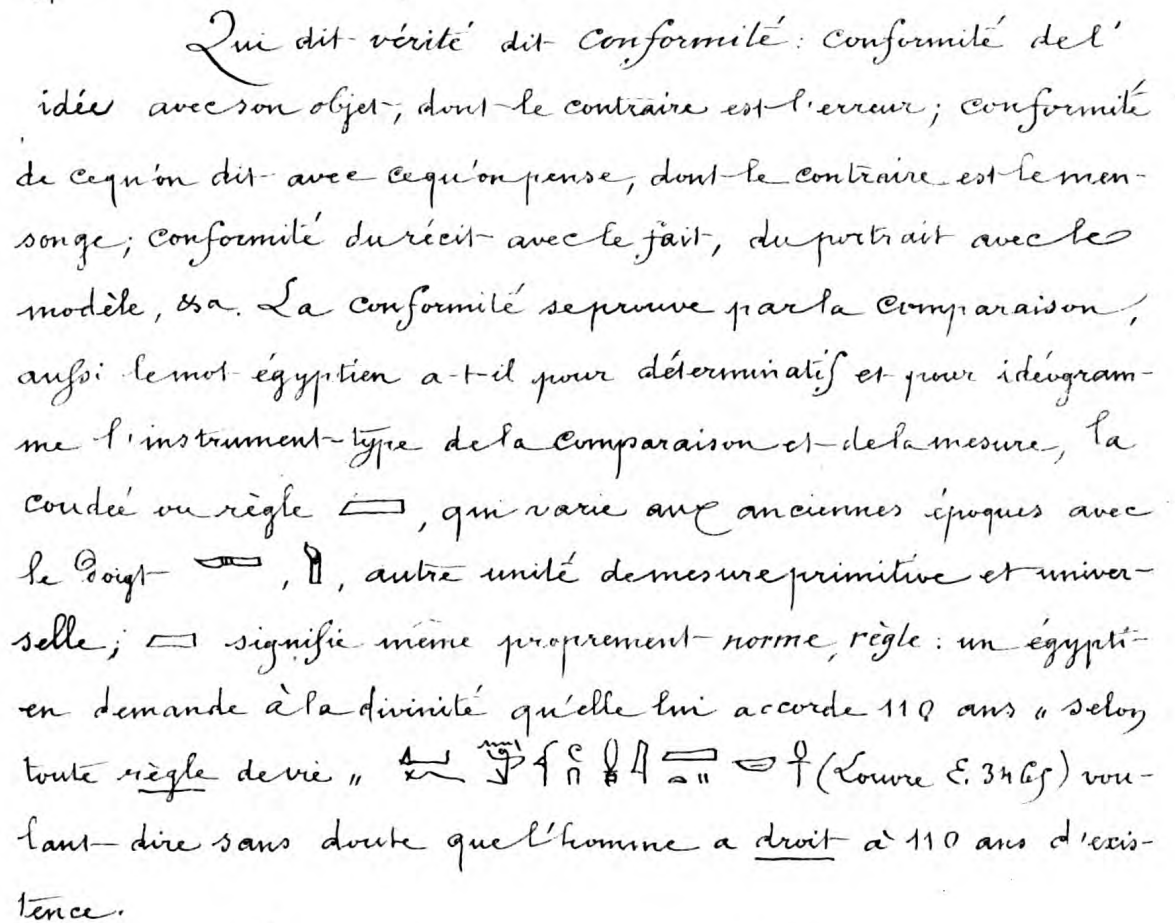 Qui dit vérité dit conformité : conformité de l'
idée avec son objet, dont le contraire est l'erreur ; conformité
de ce qu'on dit avec ce qu'on pense, dont le contraire est le men-
songe ; conformité du récit avec le fait, du portrait avec le
modèle, &a. La conformité se prouve par la comparaison,
aussi le mot égyptien a-t-il pour déterminatif et pour idéogram-
me l'instrument-type de la comparaison et de la mesure, la
coudée ou règle , qui varie aux anciennes époques avec
le doigt , , autre unité de mesure primitive et univer-
selle ; signifie même proprement norme, règle : un égypti-
en demande à la divinité qu'elle lui accorde 110 ans „ selon
toute règle de vie „ (Louvre E. ) vou-
lant dire sans doute que l'homme a droit à 110 ans d'exis-
tence.